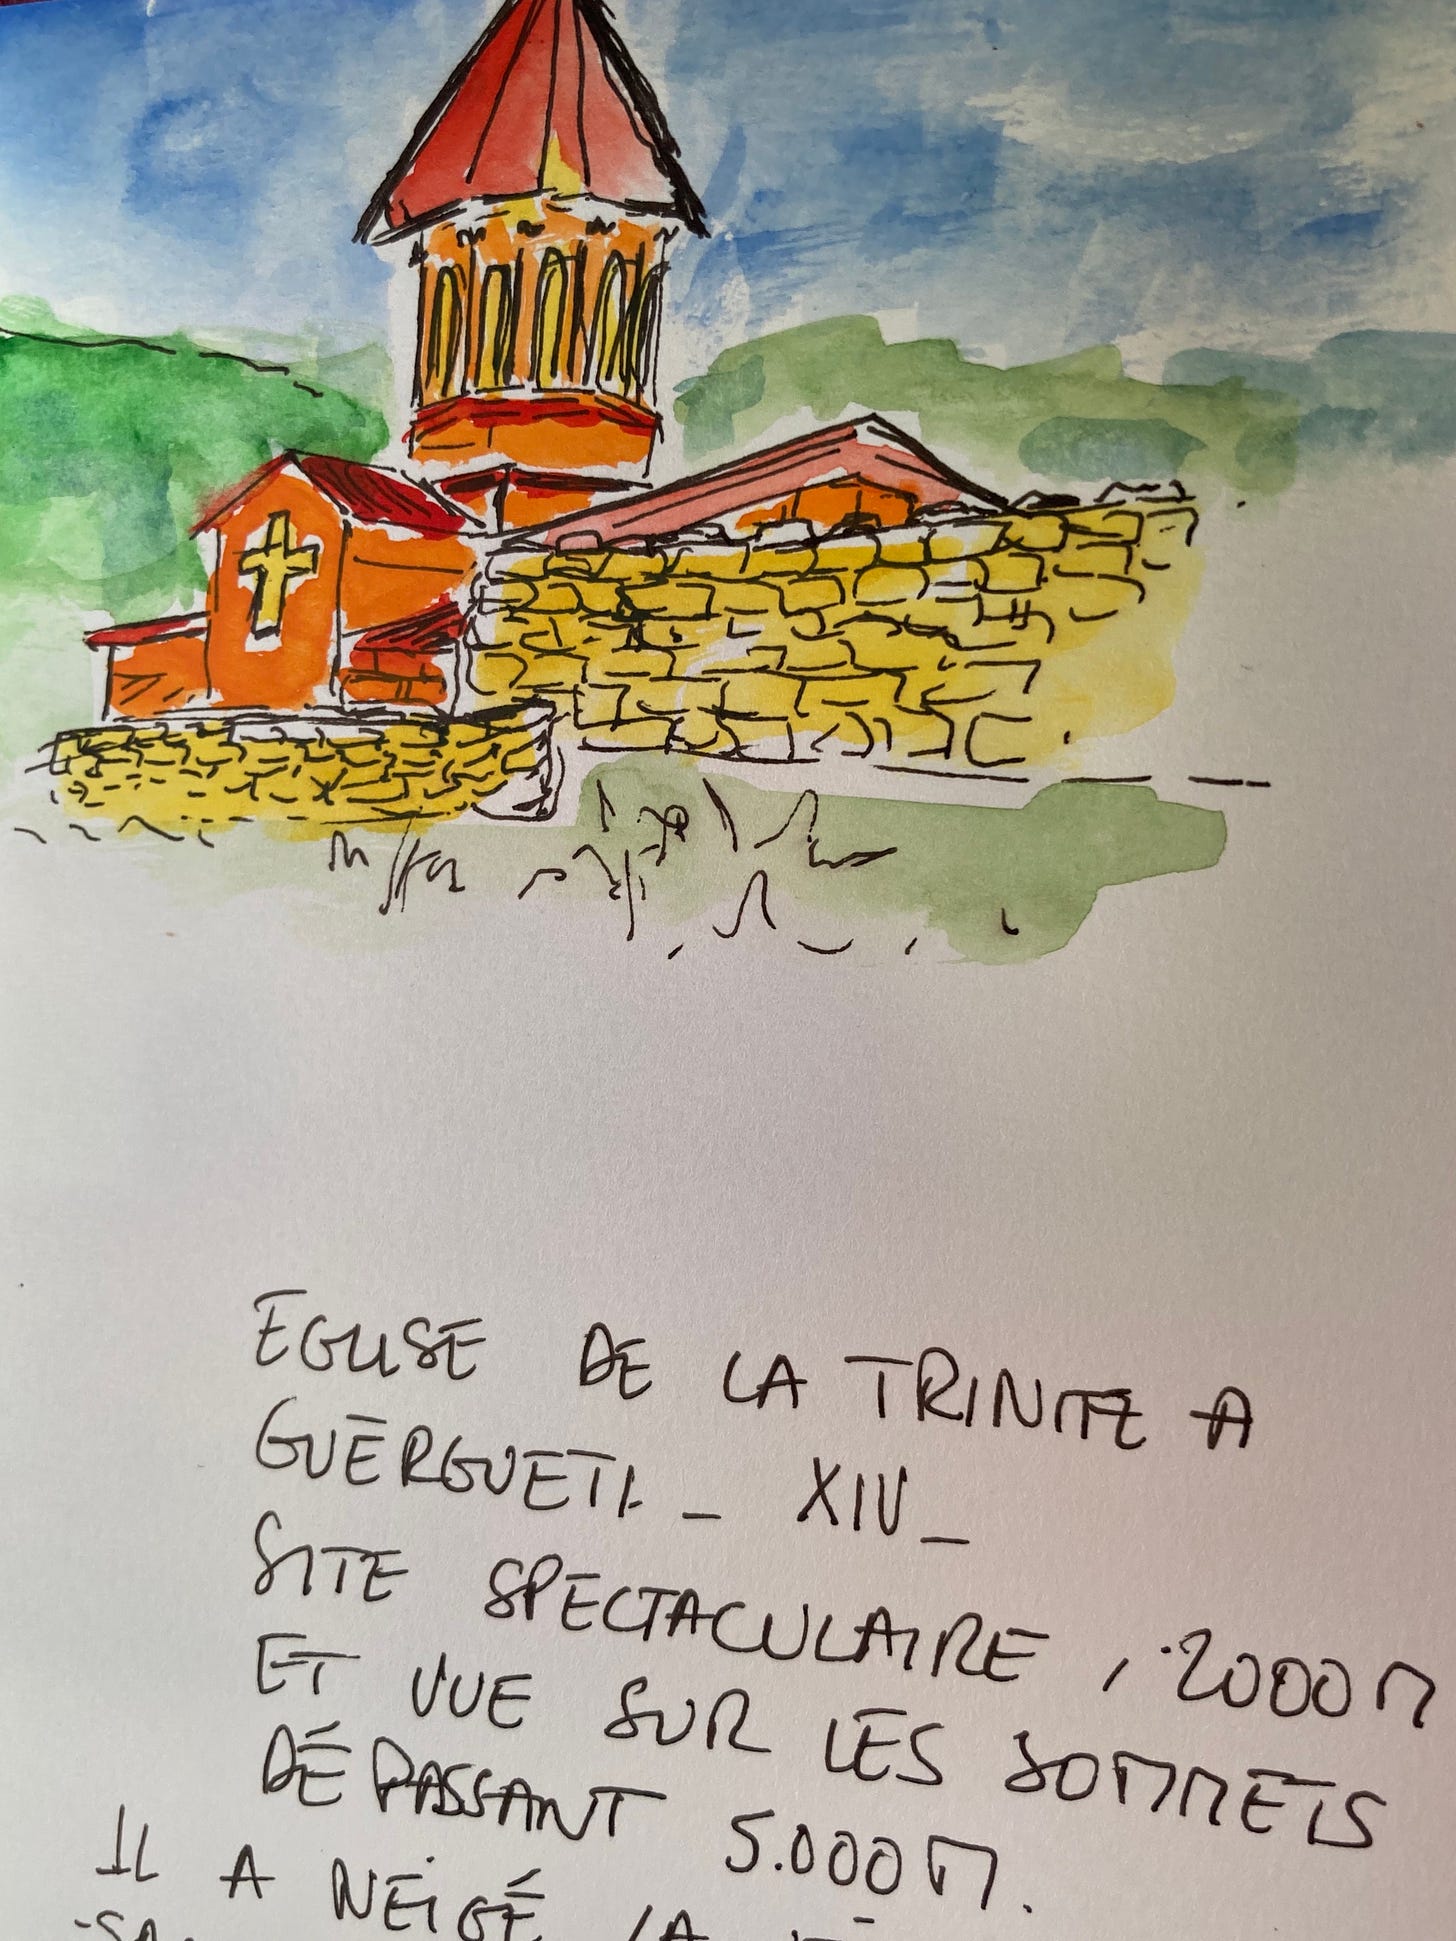 EGLISE DE LA TRINITE A
GUÉRGUETI _ XIV _
SITE SPECTACULAIRE, 2000M
ET VUE SUR LES SOMMETS
DÉPASSANT 5.000M.
IL A NEIGÉ LA